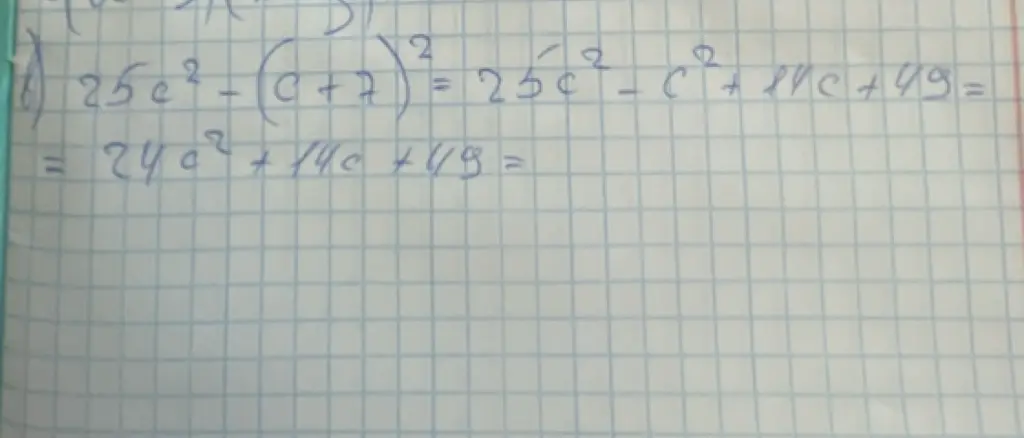 в) 25c² - (c + 7)² = 25c² - c² + 14c + 49 =
= 24c² + 14c + 49 =